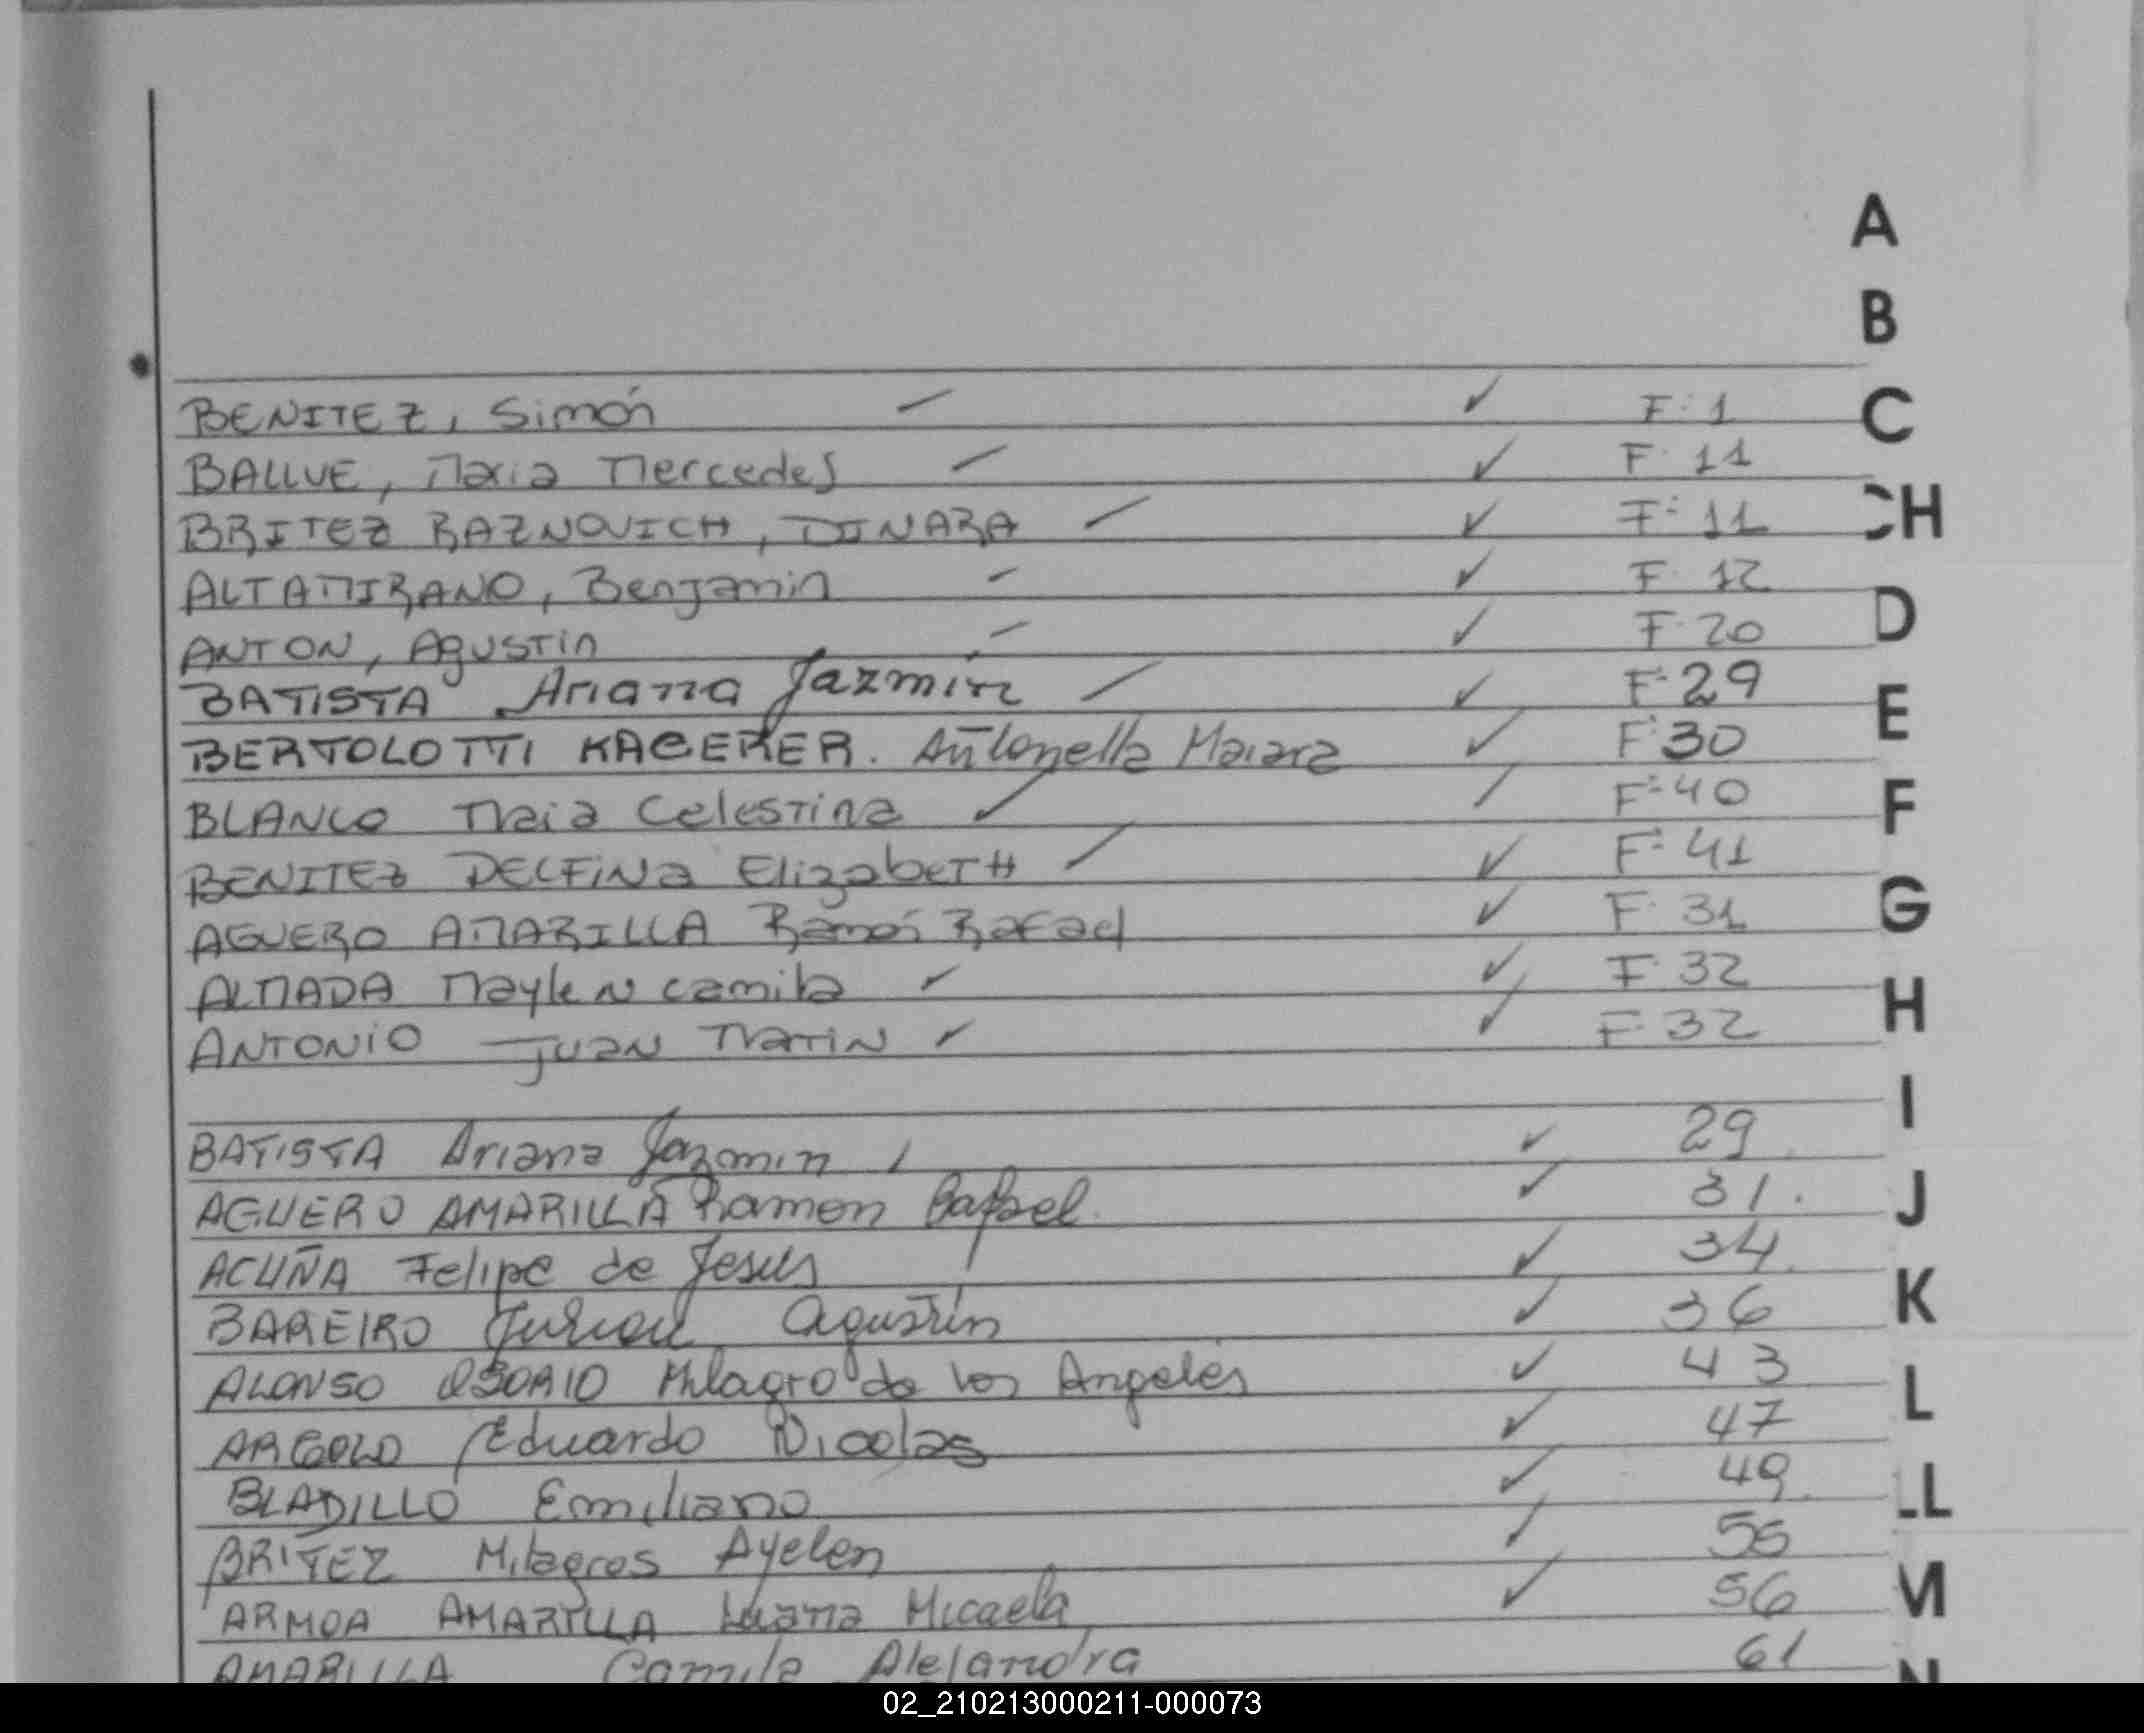 A
B
BENITEZ, Simón F: 1 C
BALLVE, Maria Mercedes F 11
BRITEZ RAZNOVICH, DINARA F: 11 CH
ALTAMIRANO, Benjamin F. 12
ANTON, Agustin F. 20 D
BATISTA Ariana Jazmín F: 29
BERTOLOTTI KAGERER. Antonella Maiara F: 30 E
BLANCO Maia Celestina F: 40 F
BENITEZ DELFINA ElizabeTH F: 41
AGUERO AMARILLA Ramón Rafael F. 31 G
ALMADA Maylen camila F. 32
ANTONIO Juan Matin F. 32 H
I
BATISTA Ariana Jazmin 29
AGUERO AMARILLA Ramon Rafael 31. J
ACUÑA Felipe de Jesus 34
BAREIRO Agustín 36 K
ALONSO OSORIO Milagro de los Angeles 43
ARGOLO Eduardo Nicolas 47 L
BLADILLO Emiliano 49 LL
BRITEZ Milagros Ayelen 55
ARMOA AMARILLA Luana Micaela 56 M
AMARILLA Camila Alejandra 61 N
02_210213000211-000073